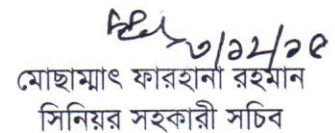 ৩/১২/১৫
মোছাম্মাৎ ফারহানা রহমান
সিনিয়র সহকারী সচিব